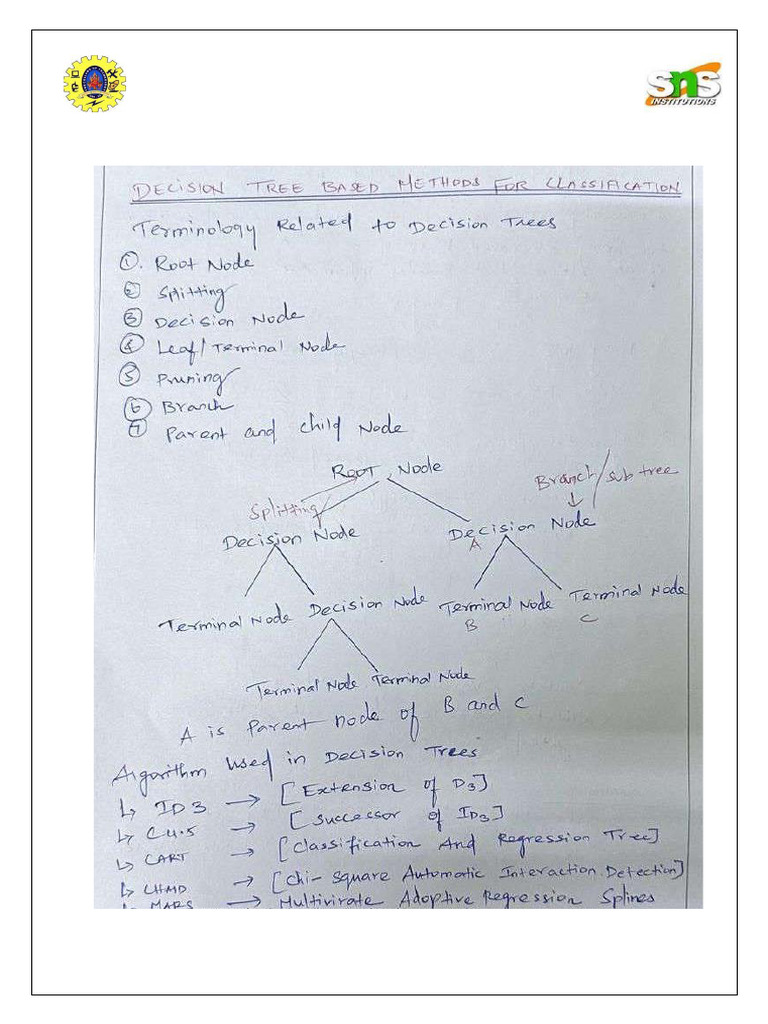 SNS
INSTITUTIONS
DECISION TREE BASED METHODS FOR CLASSIFICATION
Terminology Related to Decision Trees
① Root Node
② Splitting
③ Decision Node
④ Leaf/Terminal Node
⑤ Pruning
⑥ Branch
⑦ Parent and child Node
Root Node
Branch/sub tree
Splitting
Decision Node
Decision Node
A
Terminal Node
Decision Node
Terminal Node
Terminal Node
B
C
Terminal Node
Terminal Node
A is Parent node of B and C
Algorithm used in Decision Trees
↳ ID3 → [Extension of D3]
↳ C4.5 → [Successor of ID3]
↳ CART → [Classification And Regression Tree]
↳ CHMD → [Chi-Square Automatic Interaction Detection]
↳ MARS → Multivirate Adoptive Regression Splines